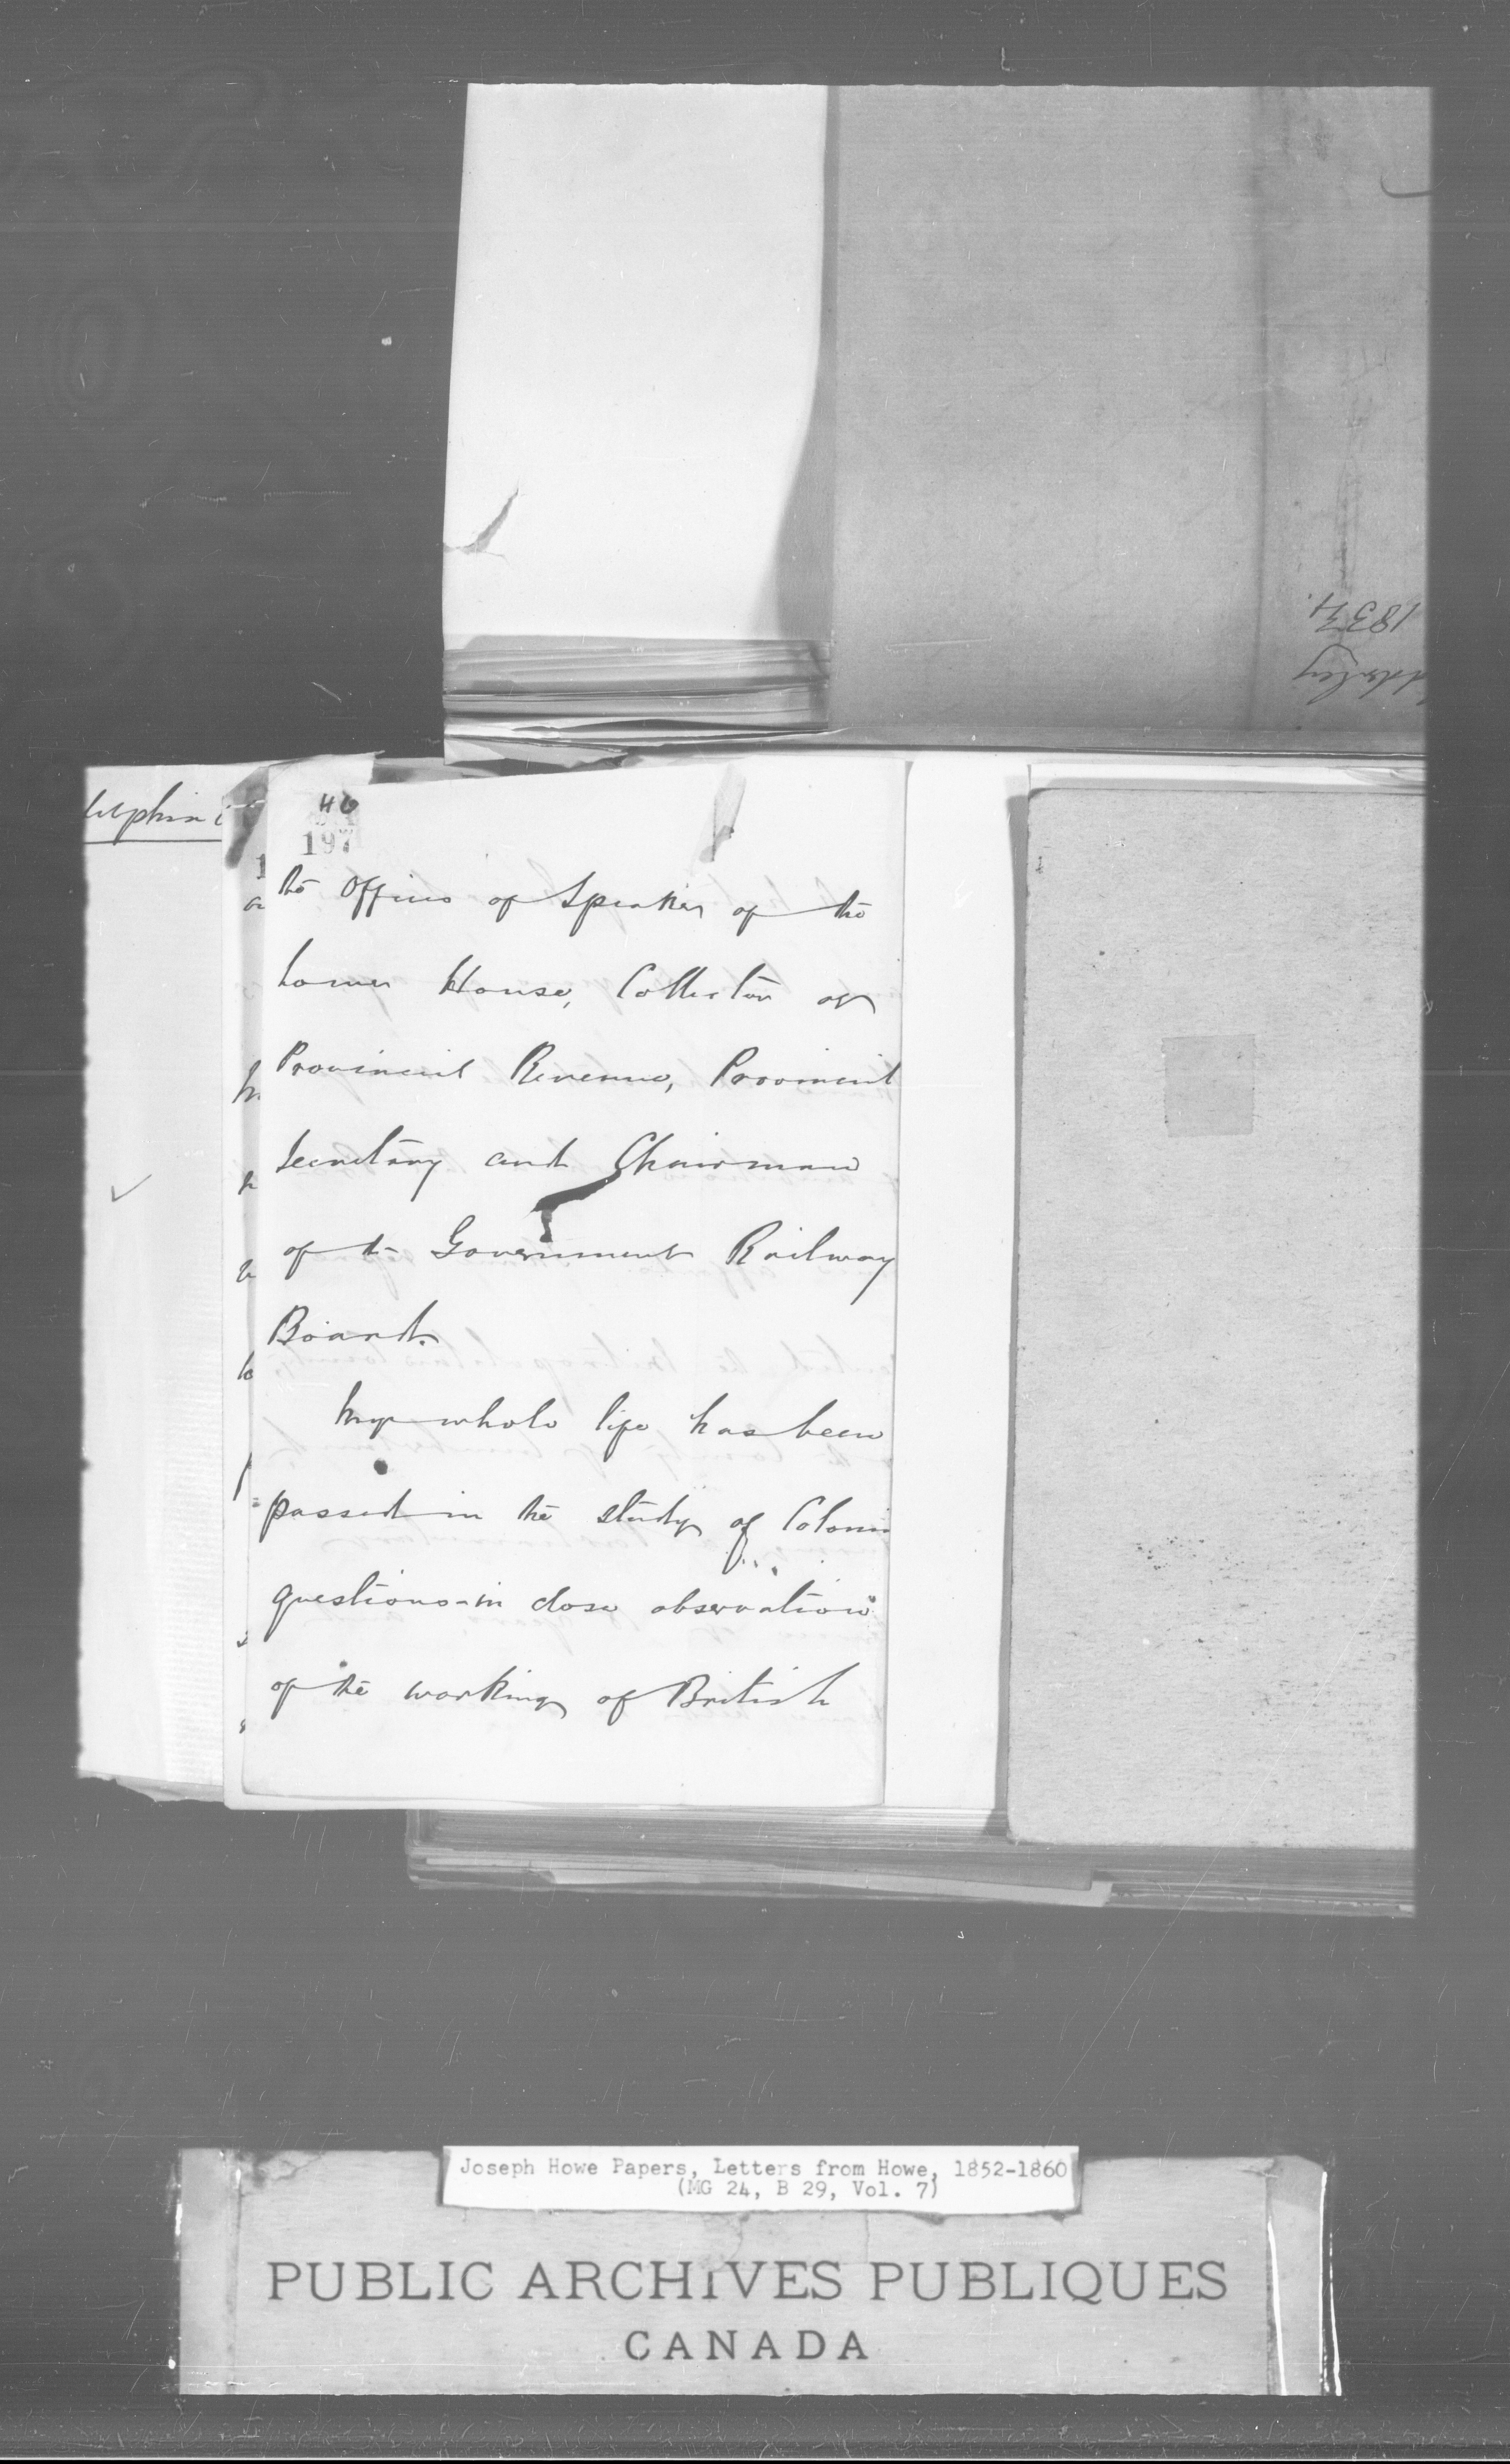 46
197
the offices of Speaker of the
Lower House, Collector of
Provincial Revenue, Provincial
Secretary and Chairman
of the Government Railway
Board.
My whole life has been
passed in the study of Colonial
questions - in close observation
of the working of British
1834.
Joseph Howe Papers, Letters from Howe, 1852-1860
(MG 24, B 29, Vol. 7)
PUBLIC ARCHIVES PUBLIQUES
CANADA